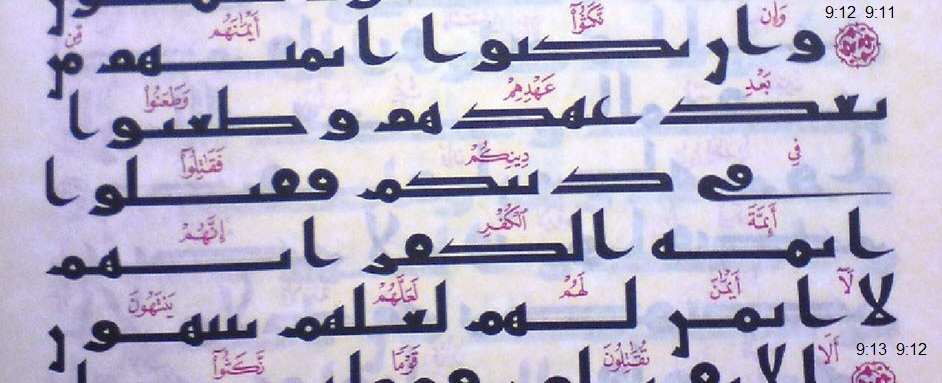 9:12 9:11
وَإِن نَّكَثُوٓا۟ أَيْمَٰنَهُم مِّن
وان نكثوا ايمنهم من
بَعْدِ عَهْدِهِمْ وَطَعَنُوا۟
بعد عهدهم وطعنوا
فِى دِينِكُمْ فَقَٰتِلُوٓا۟
فى دينكم فقتلوا
أَئِمَّةَ ٱلْكُفْرِ إِنَّهُمْ
ائمه الكفر انهم
لَآ أَيْمَٰنَ لَهُمْ لَعَلَّهُمْ يَنتَهُونَ
لا ايمن لهم لعلهم ينتهون
9:13 9:12
أَلَا تُقَٰتِلُونَ قَوْمًا نَّكَثُوٓا۟